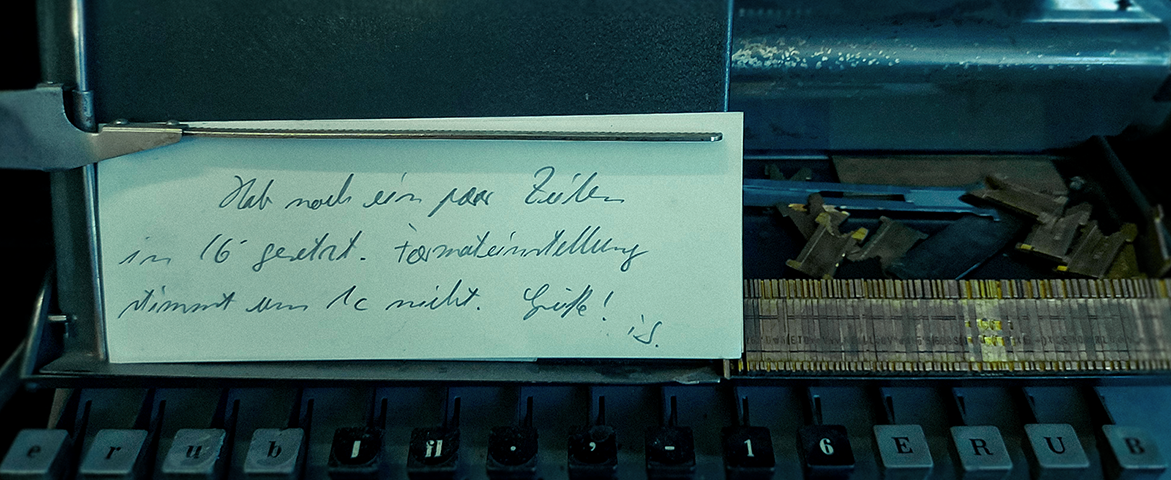 Hab noch ein paar Zeilen
in 16 gesetzt. Formateinstellung
stimmt um 1c nicht. Grüße!
e r u b fl . , - 1 6 E R U B